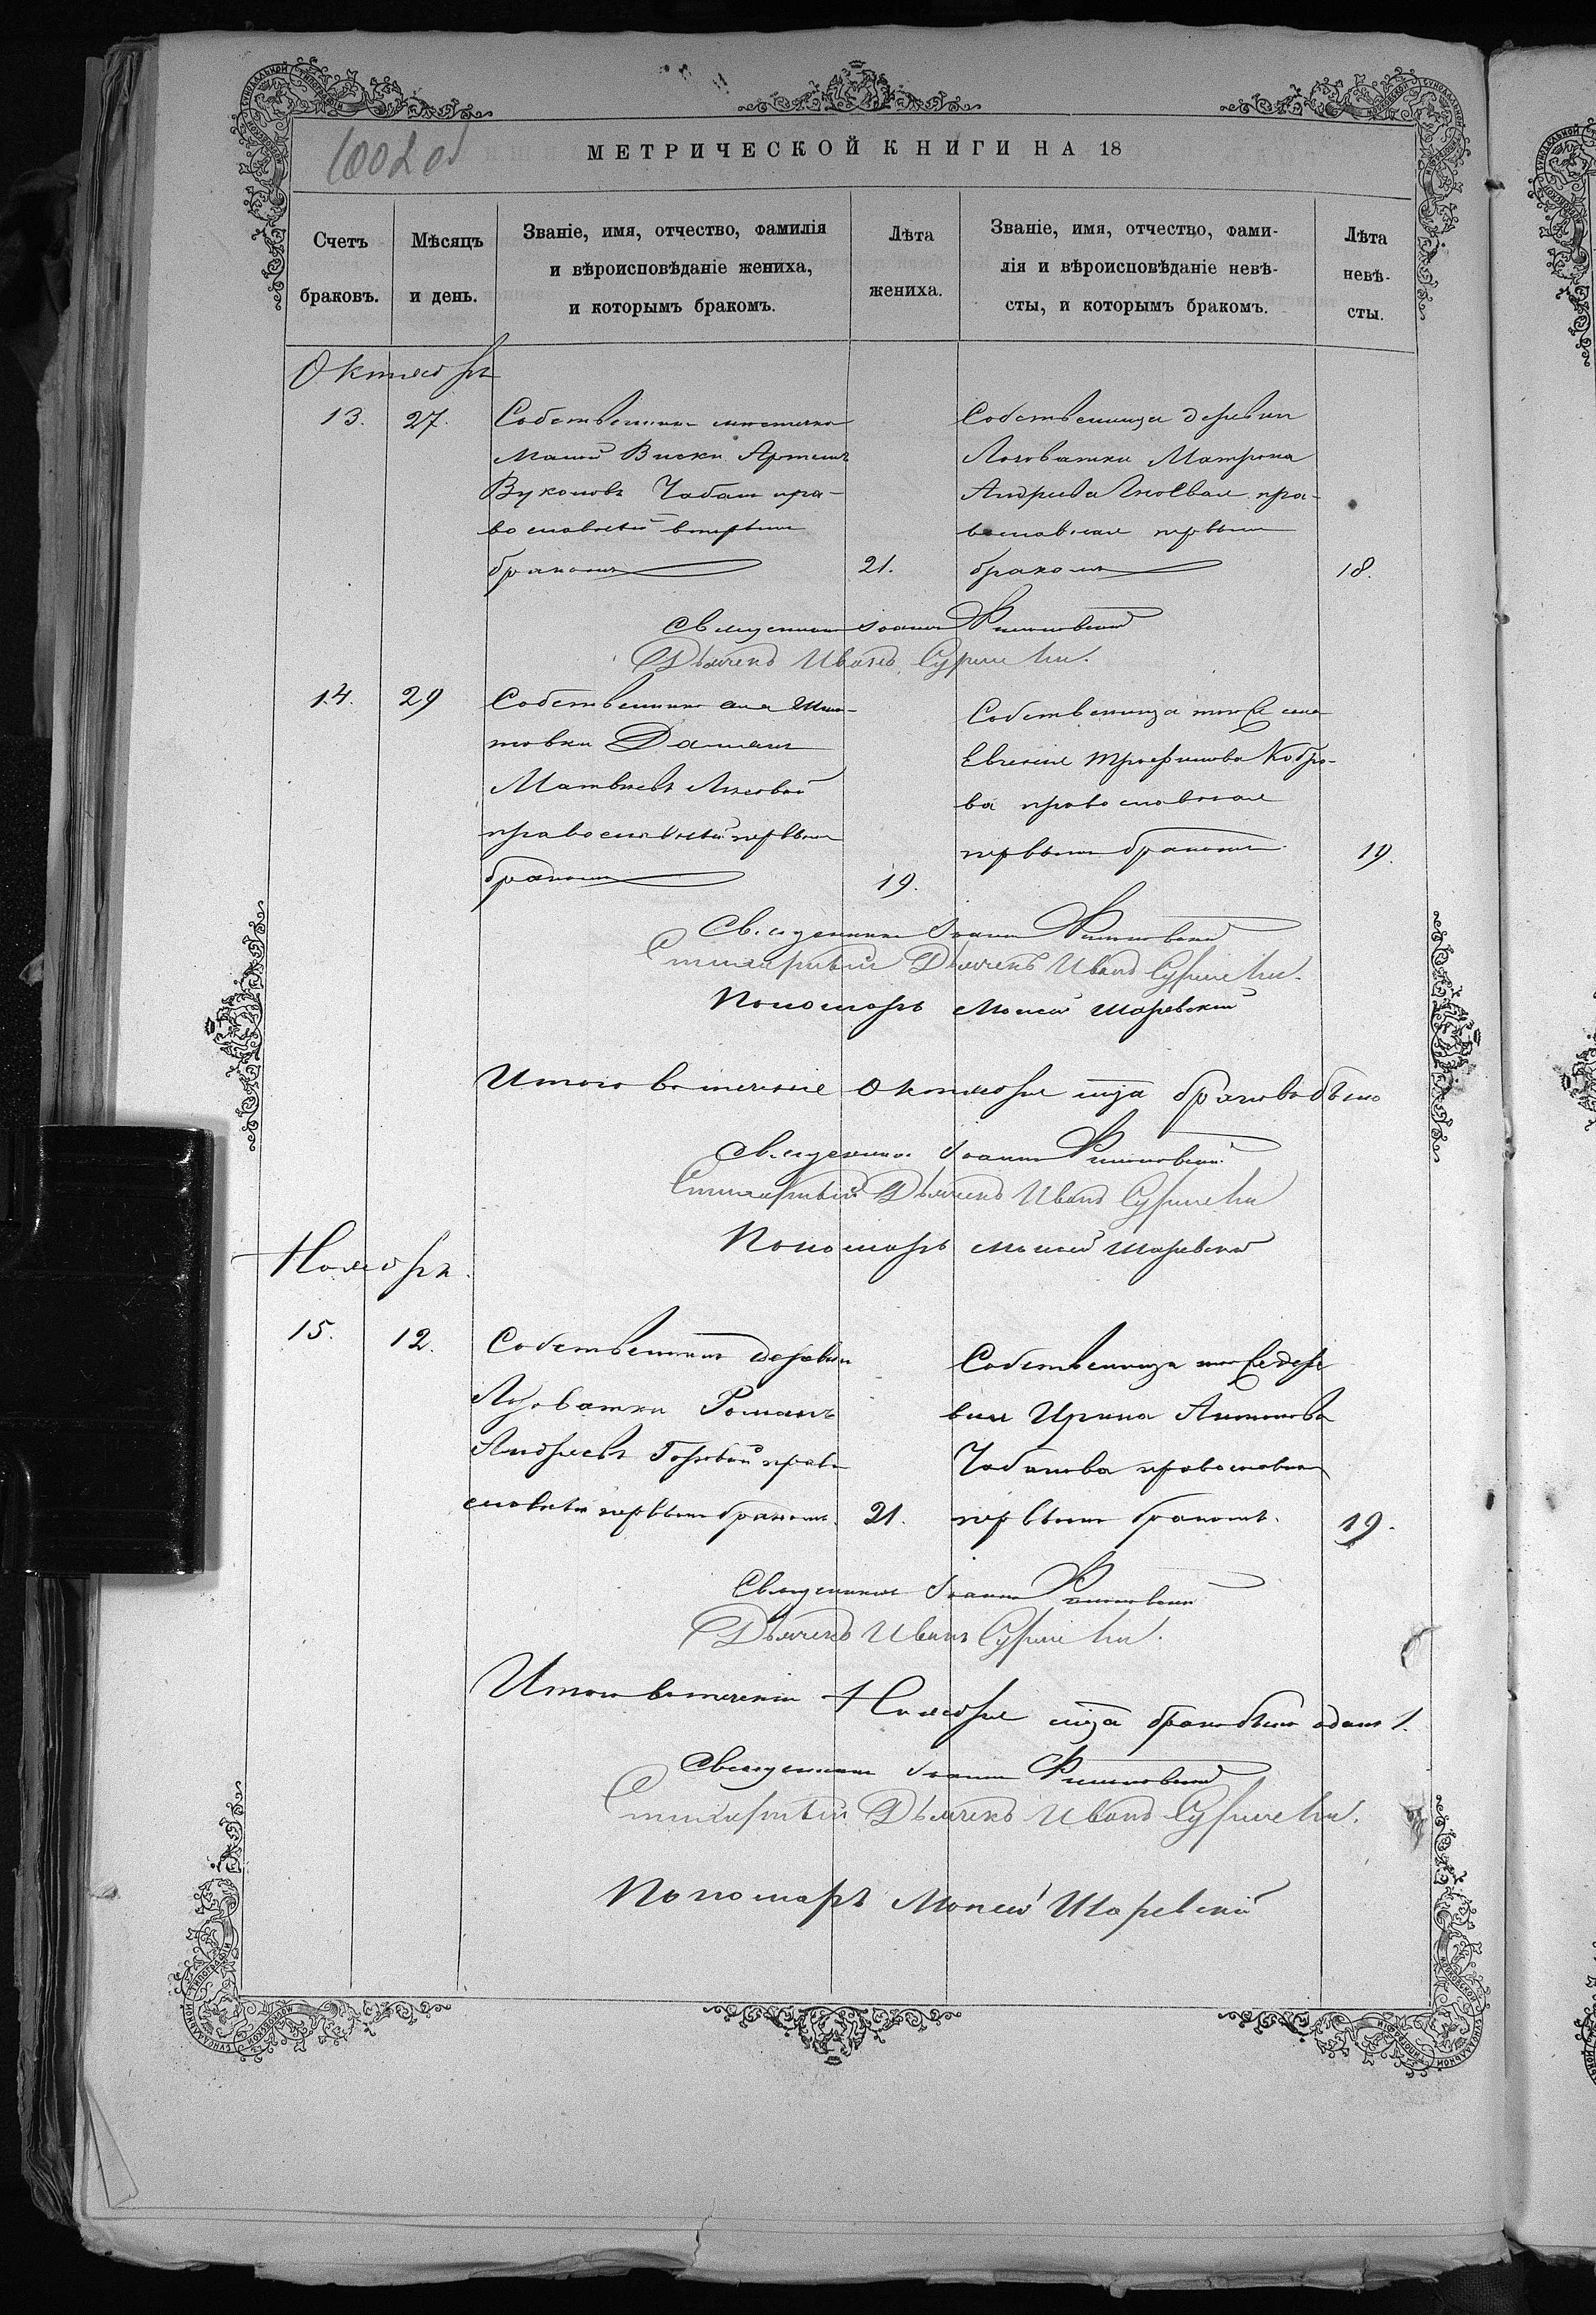 1002 об
МЕТРИЧЕСКОЙ КНИГИ НА 18
Счетъ браковъ.
Мѣсяцъ и день.
Званіе, имя, отчество, фамилія
и вѣроисповѣданіе жениха,
и которымъ бракомъ.
Лѣта жениха.
Званіе, имя, отчество, фами-
лія и вѣроисповѣданіе невѣ-
сты, и которымъ бракомъ.
Лѣта невѣ-
сты.
Октябрь
13. 27.
Собственникъ мѣстечка
Малой Виски Артемъ
Вуколовъ Чабан пра-
вославный первымъ
бракомъ 21.
Собственница деревни
Лозоватки Матрона
Андреева пра-
вославная первымъ
бракомъ 18.
Священникъ Іоаннъ
Дьячекъ Иванъ
14. 29
Собственникъ села
Даміанъ
Матвѣевъ Лисовой
православный первымъ
бракомъ 19.
Собственница того же села
Евгенія Трофимова Кобро-
ва православная
первымъ бракомъ 19.
Священникъ Іоаннъ
Стихарный Дьячекъ Иванъ
Пономарь Моисей Шаревскій
Итого въ теченіе Октября мца браковъ было
Священникъ Іоаннъ
Стихарный Дьячекъ Иванъ
Пономарь Моисей Шаревскій
Ноябрь.
15. 12.
Собственникъ деревни
Лозоватки Романъ
Андреевъ Горовой право
славный первымъ бракомъ. 21.
Собственница той же дере
вни Ирина Антонова
Чабанова православная
первымъ бракомъ. 19.
Священникъ Іоаннъ
Дьячекъ Иванъ
Итого въ теченіи Ноября мца браковъ было одинъ 1.
Священникъ Іоаннъ
Стихарный Дьячекъ Иванъ
Пономарь Моисей Шаревскій